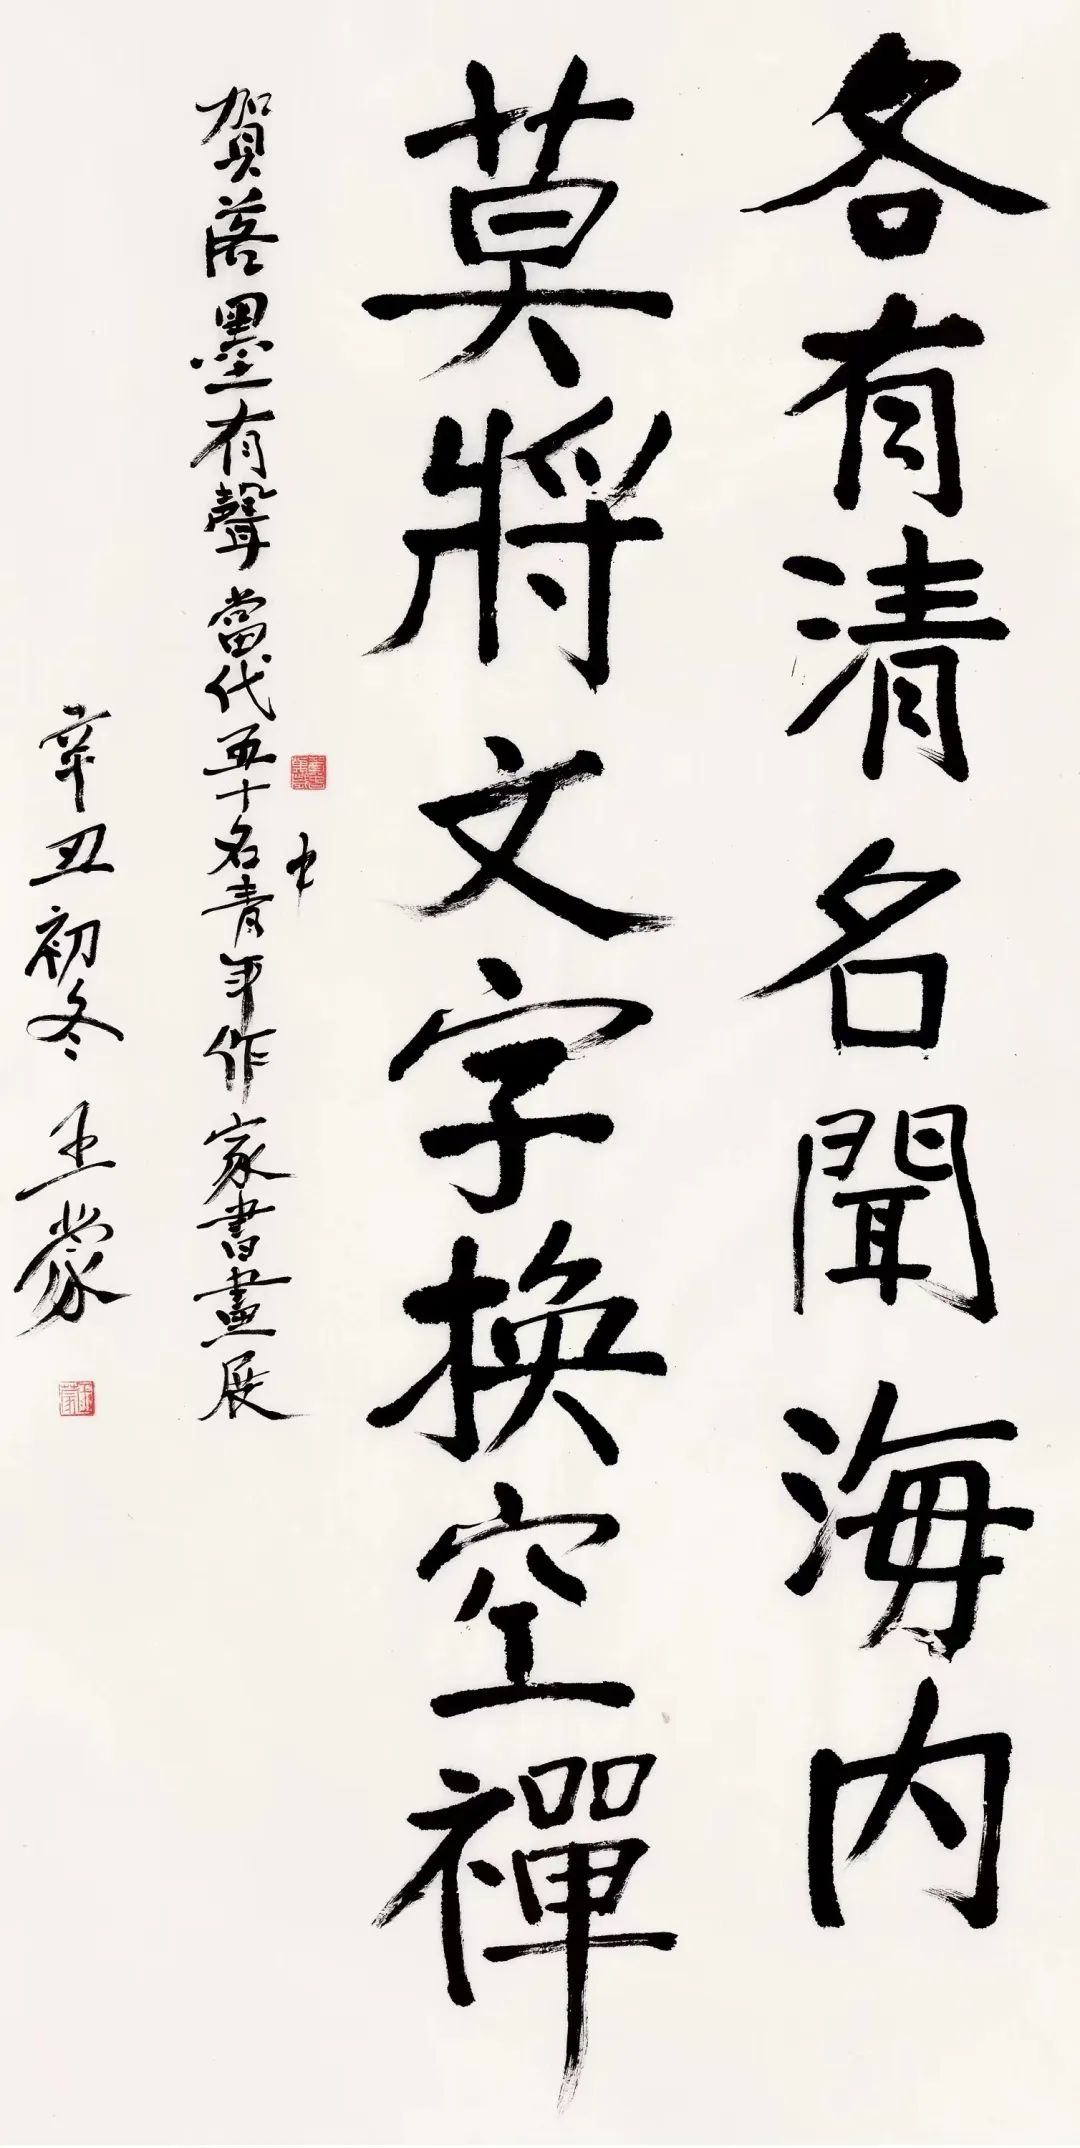 各有清名聞海内
莫將文字換空禪
賀落墨有聲當代五十名青年作家書畫展
中
辛丑初冬 王蒙
王蒙